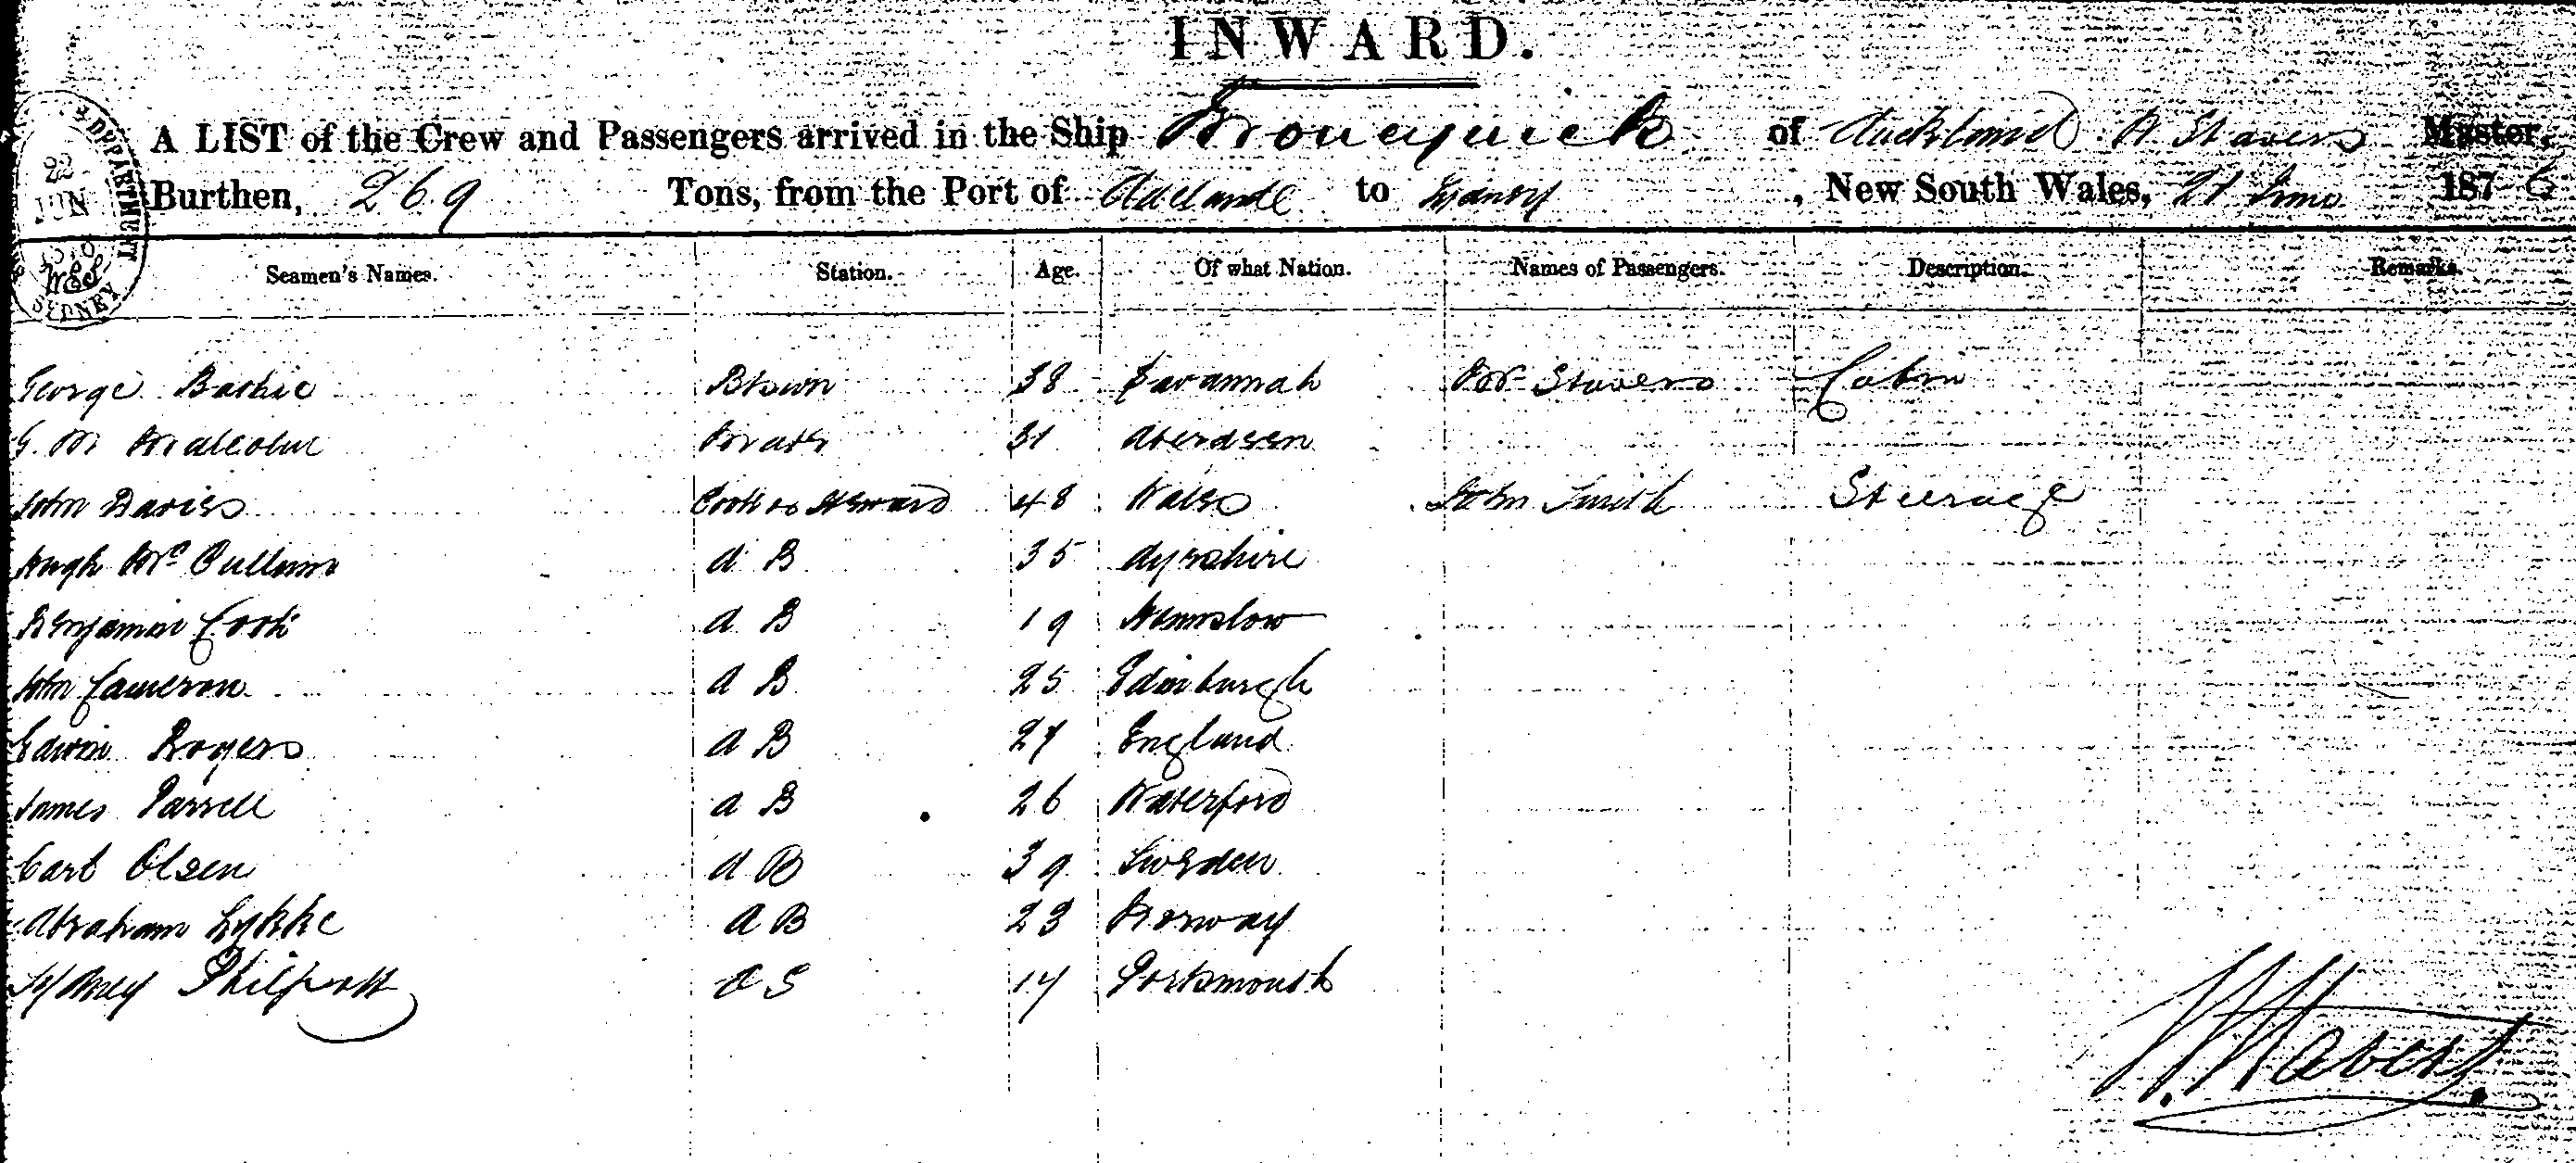 INWARD.
A LIST of the Crew and Passengers arrived in the Ship of Auckland W. Stavers Master,
Burthen, 269 Tons, from the Port of Adelaide to Sydney, New South Wales, 21 June 1876
22
JUN
SYDNEY
Seamen's Names. Station. Age. Of what Nation. Names of Passengers. Description. Remarks.
George 38 Savannah Stavers Cabin
G. M Malcolm Mate 31 Aberdeen
John Davies Cook & Steward 48 Wales John Smith Steerage
Hugh McCullum A B 35 Ayrshire
Benjamin Cook A B 19
John Cameron A B 25 Edinburgh
Edwin Rogers A B 27 England
James Farrell A B 26 Waterford
Carl Olsen A B 39 Sweden
Abraham Lykke A B 23 Norway
Sydney Philpott O S 17 Portsmouth
W. Stavers.